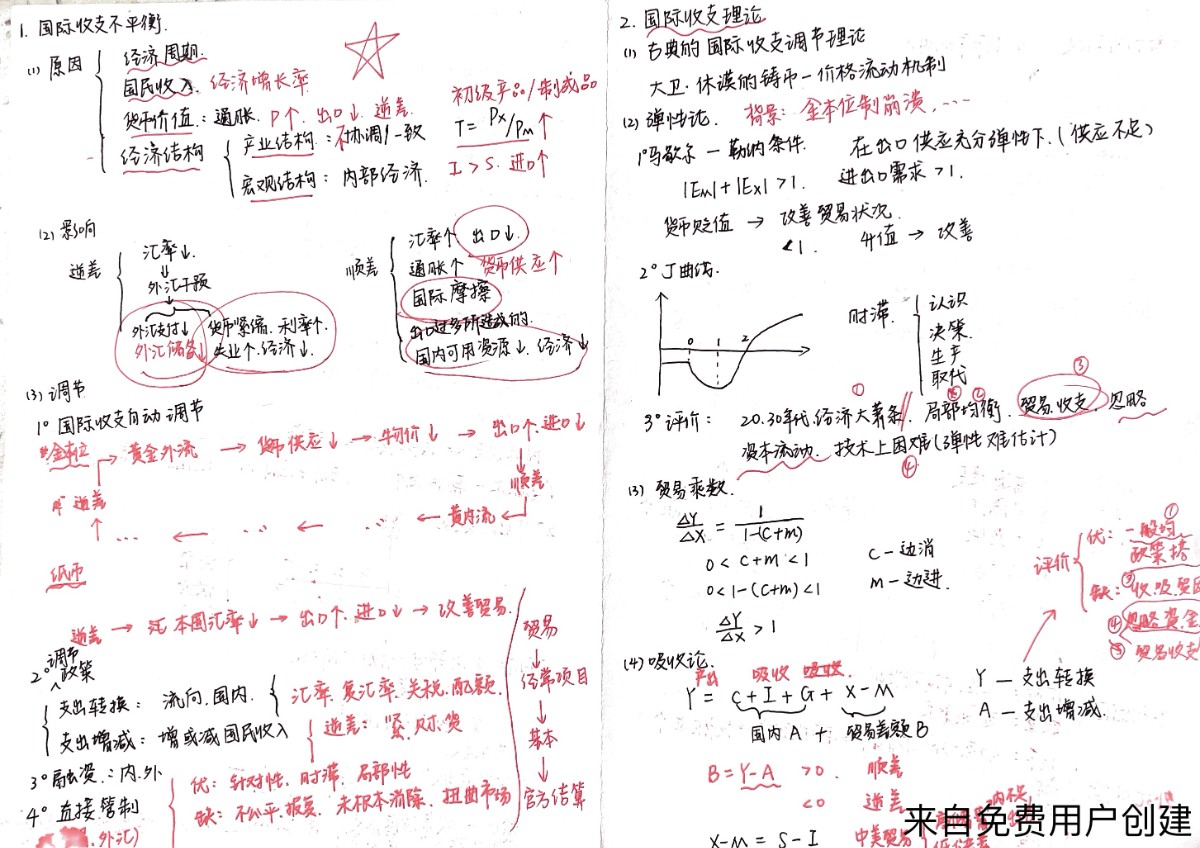 1. 国际收支不平衡.
(1) 原因
经济周期.
国民收入. 经济增长率
货币价值: 通胀. P↑ 出口↓ 逆差.
经济结构
产业结构: 不协调/一致
宏观结构: 内部经济.
初级产品/制成品
T = Px/Pm ↑
I > S. 进口↑
(2) 影响
逆差
汇率↓.
↓
外汇干预
↓
外汇支付↓
外汇储备↓
货币紧缩. 利率↑.
失业↑. 经济↓.
顺差
汇率↑ 出口↓.
通胀↑ 货币供应↑
国际摩擦
出口过多所造成的.
国内可用资源↓. 经济↓
(3) 调节
1° 国际收支自动调节
金本位
逆差 → 黄金外流 → 货币供应↓ → 物价↓ → 出口↑. 进口↓
↓
顺差
↑ ... ← ... ← ... ← 黄内流 ←
纸币
逆差 → 汇 本国汇率↓ → 出口↑. 进口↓ → 改善贸易.
2° 调节政策
支出转换: 流向. 国内. 汇率. 复汇率. 关税. 配额.
支出增减: 增或减国民收入 逆差: 紧. 财. 货
3° 融资: 内. 外
4° 直接管制
外汇)
优: 针对性. 时滞. 局部性
缺: 不公平. 报复. 未根本消除. 扭曲市场
贸易
↓
经常项目
↓
基本
↓
官方结算
2. 国际收支理论
(1) 古典的国际收支调节理论
大卫·休谟的铸币—价格流动机制
(2) 弹性论. 背景: 金本位制崩溃. ...
1° 马歇尔—勒纳条件. 在出口供应充分弹性下. (供应不足)
|Em|+|Ex|>1. 进出口需求>1.
货币贬值 → 改善贸易状况.
<1. 升值 → 改善
2° J曲线.
0 1 2
时滞.
认识
决策.
生产
取代
3° 评价: ① 20.30年代.经济大萧条. 局部均衡. ② ③ 贸易收支. 忽略
资本流动. 技术上困难(弹性难估计)
④
(3) 贸易乘数.
ΔY/ΔX = 1/1-(C+m)
0 < C+m < 1
0 < 1-(C+m) < 1
ΔY/ΔX > 1
C — 边消
m — 边进.
评价
优: 一般均 ①
政策搭
缺: 收吸贸
④ 忽略资金
⑤ 贸易收支
(4) 吸收论.
产出 吸收 吸收
Y = C+I+G+X-M
国内A + 贸易差额B
Y — 支出转换
A — 支出增减.
B = Y-A >0. 顺差
<0 逆差
X-M = S-I 中美贸易
来自免费用户创建